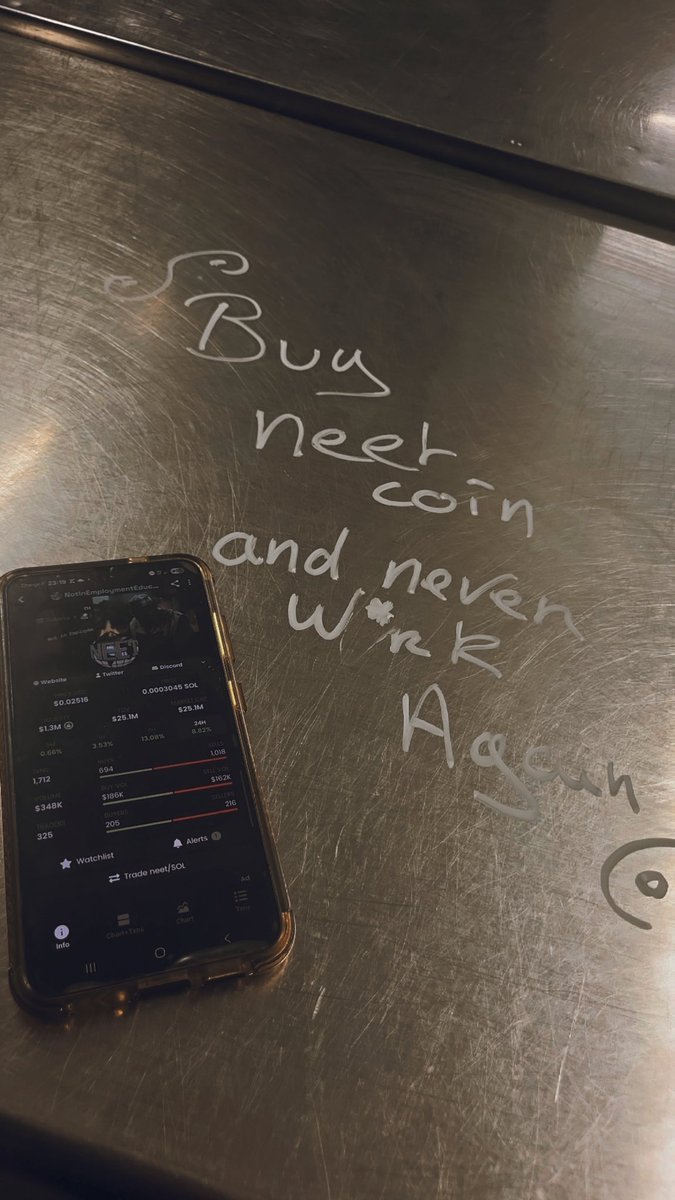 Buy
neet
coin
and never
W*rk
Again
23:19
NotInEmploymentEduc...
NEET
Website
Twitter
Discord
$0.02516
0.0003045 SOL
$1.3M
$25.1M
$25.1M
24H
0.66%
3.53%
13.08%
8.82%
1,712
694
1,018
BUY VOL
SELL VOL
$348K
$186K
$162K
TRADERS
BUYERS
SELLERS
325
205
216
Watchlist
Alerts
Trade neet/SOL
Ad
Info
Chart+Txns
Chart
Txns